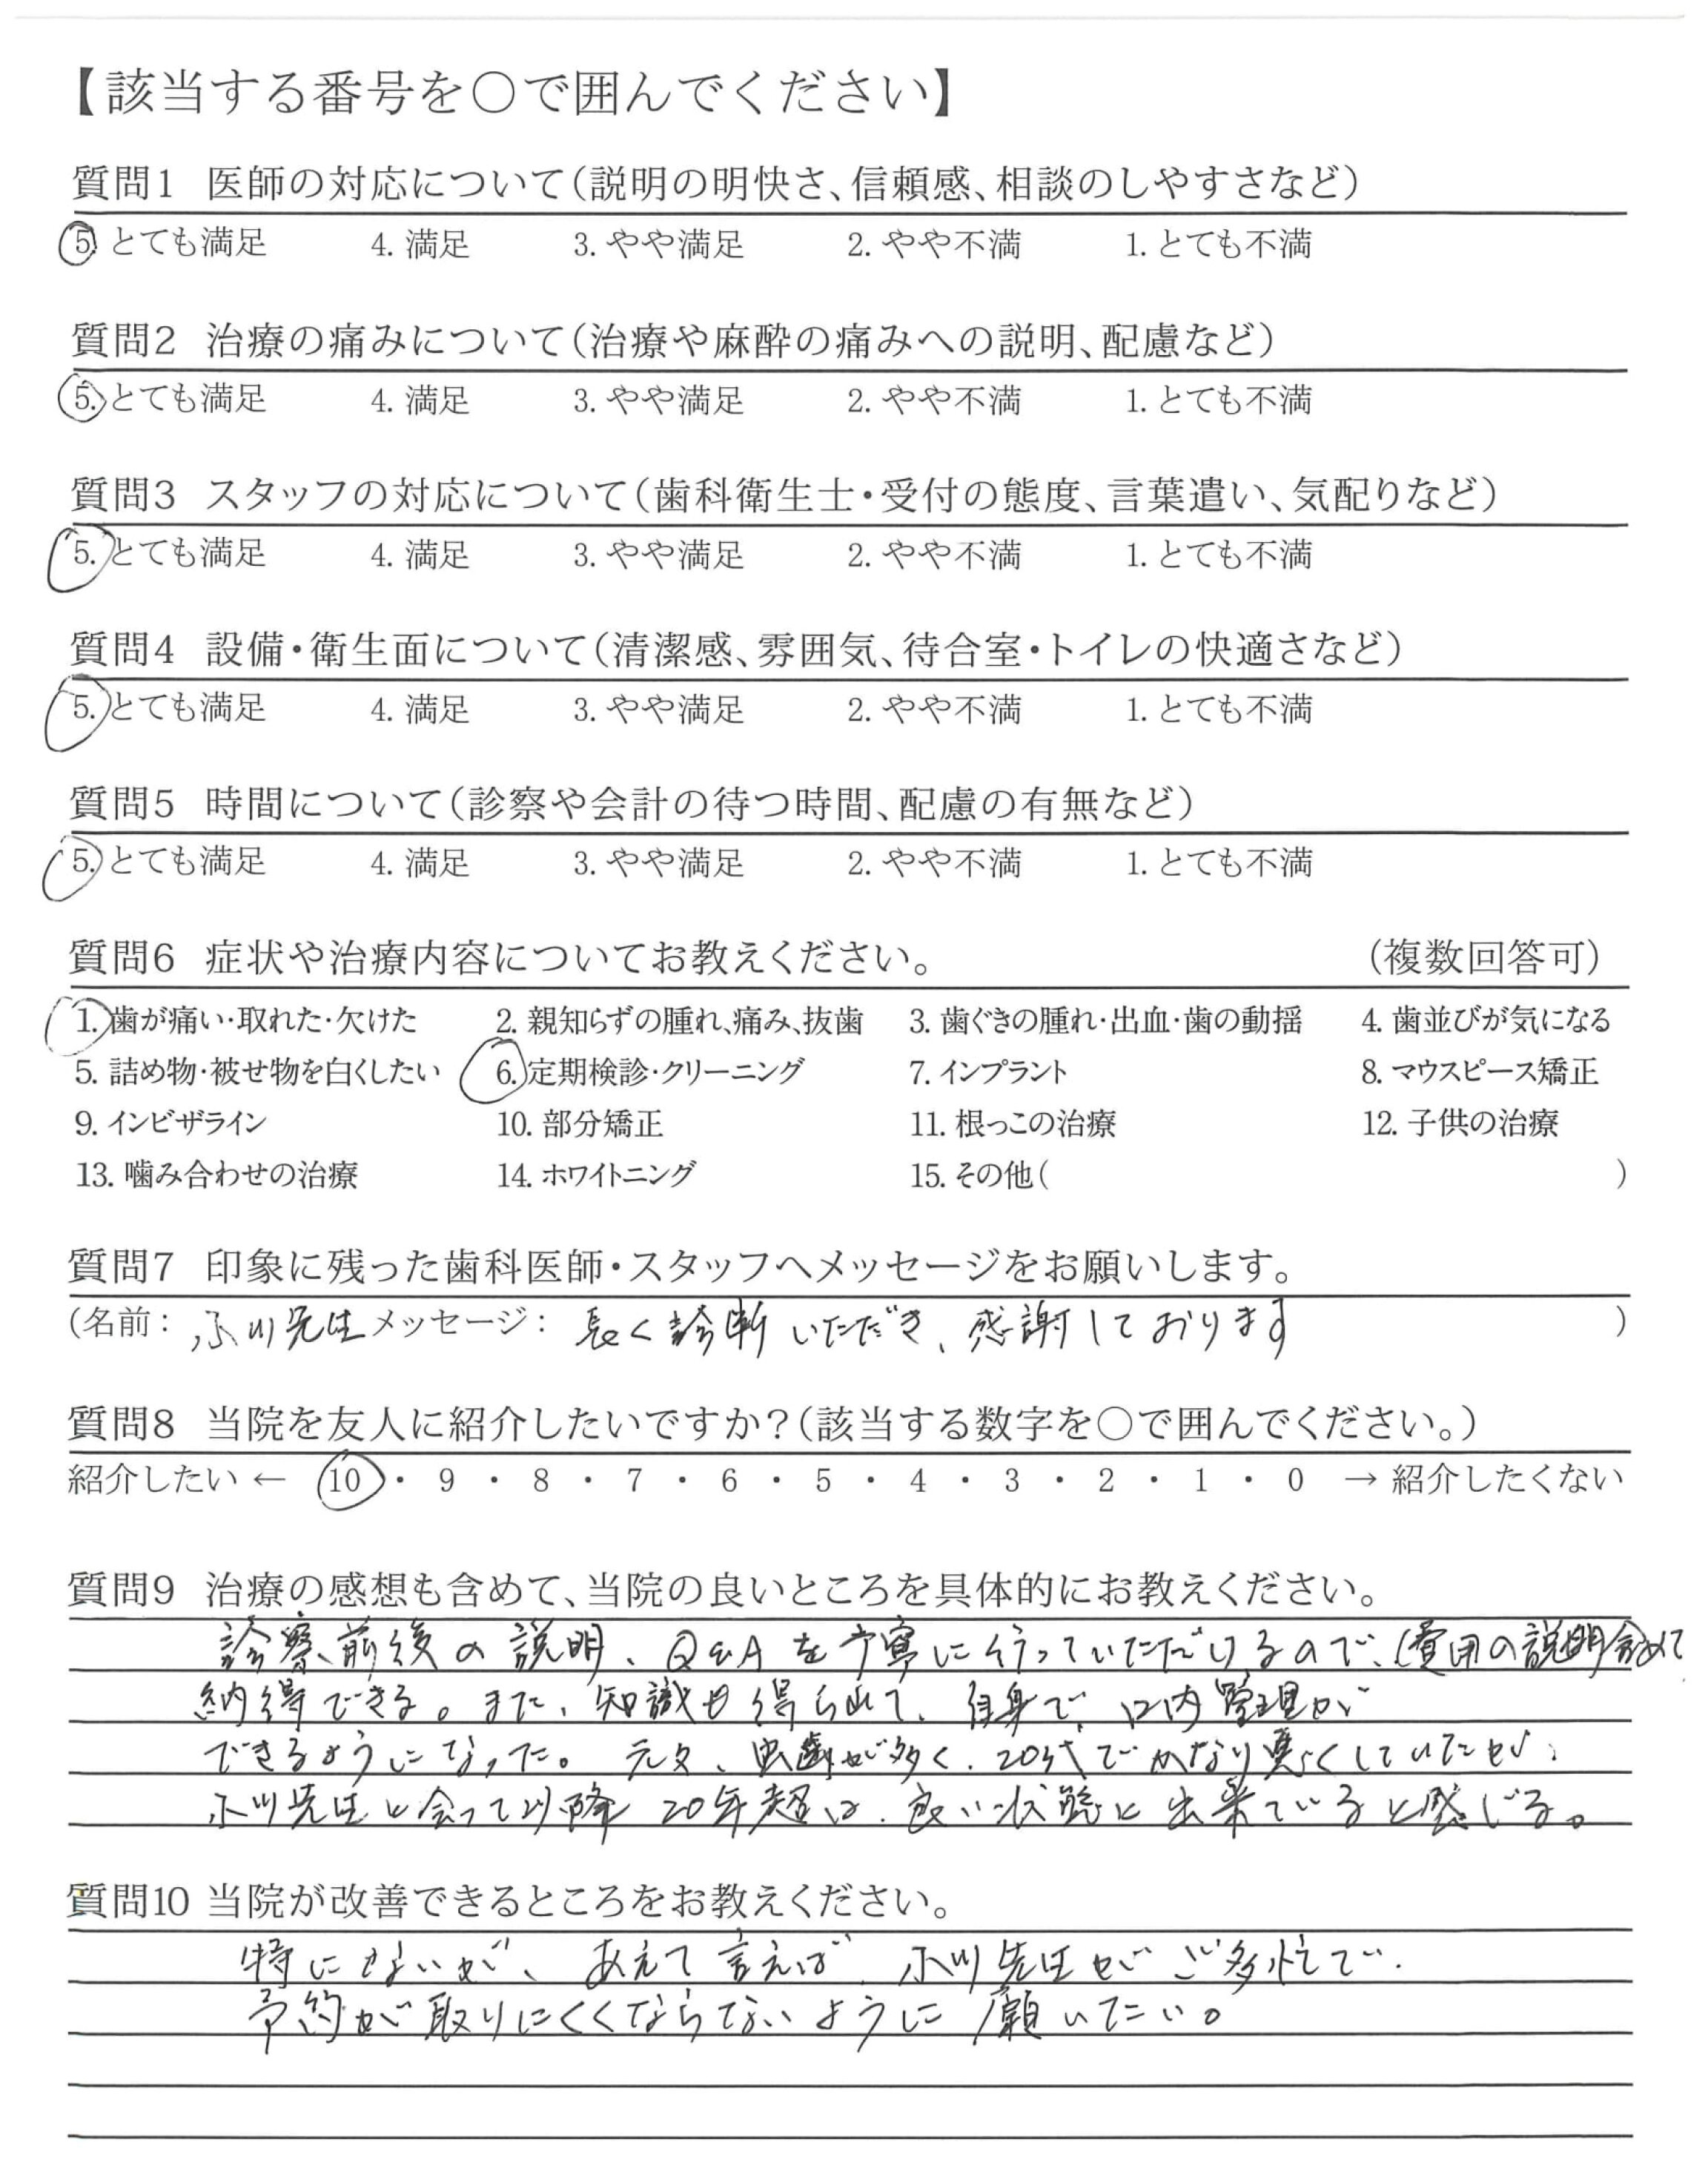 【該当する番号を○で囲んでください】
質問1 医師の対応について(説明の明快さ、信頼感、相談のしやすさなど)
5. とても満足 4. 満足 3. やや満足 2. やや不満 1. とても不満
質問2 治療の痛みについて(治療や麻酔の痛みへの説明、配慮など)
5. とても満足 4. 満足 3. やや満足 2. やや不満 1. とても不満
質問3 スタッフの対応について(歯科衛生士・受付の態度、言葉遣い、気配りなど)
5. とても満足 4. 満足 3. やや満足 2. やや不満 1. とても不満
質問4 設備・衛生面について(清潔感、雰囲気、待合室・トイレの快適さなど)
5. とても満足 4. 満足 3. やや満足 2. やや不満 1. とても不満
質問5 時間について(診察や会計の待つ時間、配慮の有無など)
5. とても満足 4. 満足 3. やや満足 2. やや不満 1. とても不満
質問6 症状や治療内容についてお教えください。 (複数回答可)
1. 歯が痛い・取れた・欠けた 2. 親知らずの腫れ、痛み、抜歯 3. 歯ぐきの腫れ・出血・歯の動揺 4. 歯並びが気になる
5. 詰め物・被せ物を白くしたい 6. 定期検診・クリーニング 7. インプラント 8. マウスピース矯正
9. インビザライン 10. 部分矯正 11. 根っこの治療 12. 子供の治療
13. 噛み合わせの治療 14. ホワイトニング 15. その他( )
質問7 印象に残った歯科医師・スタッフへメッセージをお願いします。
(名前: 小川先生 メッセージ: 長く診断いただき、感謝しております )
質問8 当院を友人に紹介したいですか?(該当する数字を○で囲んでください。)
紹介したい ← 10 ・ 9 ・ 8 ・ 7 ・ 6 ・ 5 ・ 4 ・ 3 ・ 2 ・ 1 ・ 0 → 紹介したくない
質問9 治療の感想も含めて、当院の良いところを具体的にお教えください。
診察前後の説明、Q&Aを丁寧に行っていただけるので、(費用の説明含めて
納得できる。また、知識も得られて、自身で、口内管理が
できるようになった。元々、虫歯が多く、20代でかなり悪くしていたが、
小川先生と会って以降20年超は、良い状態に出来ていると感じる。
質問10 当院が改善できるところをお教えください。
特にないが、あえて言えば、小川先生がご多忙で、
予約が取りにくくならないように願いたい。